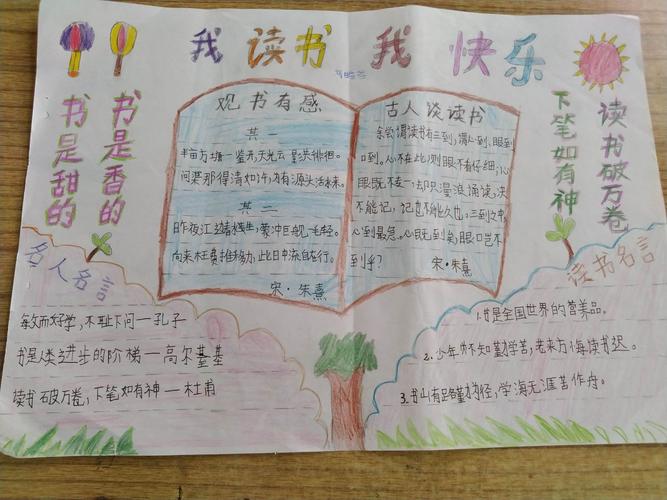 我读书我快乐
书是香的
书是甜的
读书破万卷
下笔如有神
观书有感
其一
半亩方塘一鉴开，天光云影共徘徊。
问渠那得清如许，为有源头活水来。
其二
昨夜江边春水生，蒙冲巨舰一毛轻。
向来枉费推移力，此日中流自在行。
宋·朱熹
古人谈读书
余尝谓读书有三到，谓心到、眼到
口到。心不在此，则眼不看仔细，心
眼既不专一，却只漫浪诵读，决
不能记，记也不能久也。三到之中，
心到最急。心既到矣，眼口岂不
到乎？
宋·朱熹
名人名言
敏而好学，不耻下问—孔子
书是人类进步的阶梯—高尔基
读书破万卷，下笔如有神—杜甫
读书名言
1.书是全国世界的营养品。
2.少年不知勤学苦，老来方悔读书迟。
3.书山有路勤为径，学海无涯苦作舟。